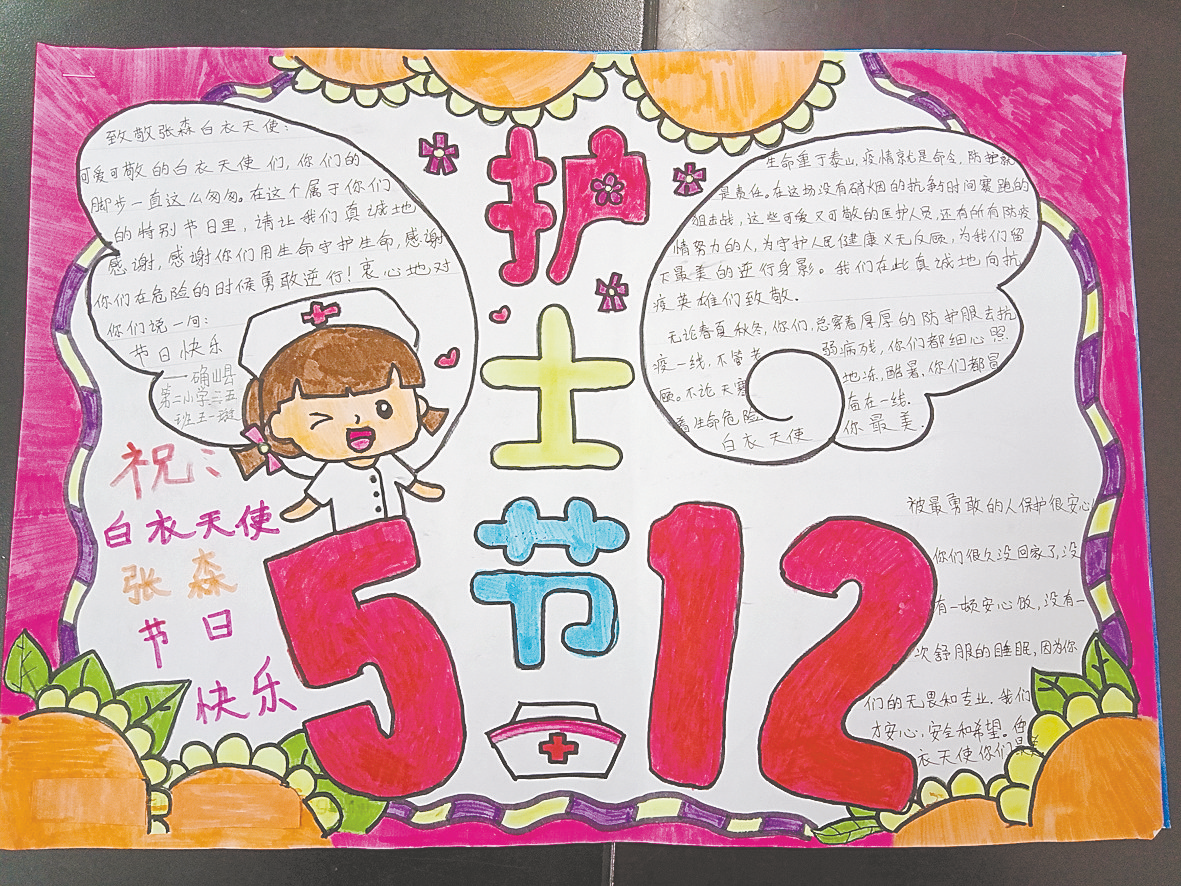 致敬张森白衣天使：
可爱可敬的白衣天使们，你们的
脚步一直这么匆匆。在这个属于你们
的特别节日里，请让我们真诚地
感谢，感谢你们用生命守护生命，感谢
你们在危险的时候勇敢逆行！衷心地对
你们说一句：
节日快乐
一确山县
第二小学三五
班王一璇
祝：
白衣天使
张森
节日
快乐
护
士
节
5 12
生命重于泰山，疫情就是命令，防护就
是责任。在这场没有硝烟的抗争时间赛跑的
狙击战，这些可爱又可敬的医护人员，还有所有防疫
情努力的人，为守护人民健康义无反顾，为我们留
下最美的逆行身影。我们在此真诚地向抗
疫英雄们致敬．
无论春夏秋冬，你们，总穿着厚厚的防护服去抗
疫一线，不管老 弱病残，你们都细心照
顾。不论天寒 地冻，酷暑．你们都冒
着生命危险 在一线．
白衣天使 你最美．
被最勇敢的人保护很安心
你们很久没回家了，没
有一顿安心饭，没有一
次舒服的睡眠，因为你
们的无畏和专业．我们
才安心，安全和希望。
衣天使你们最美